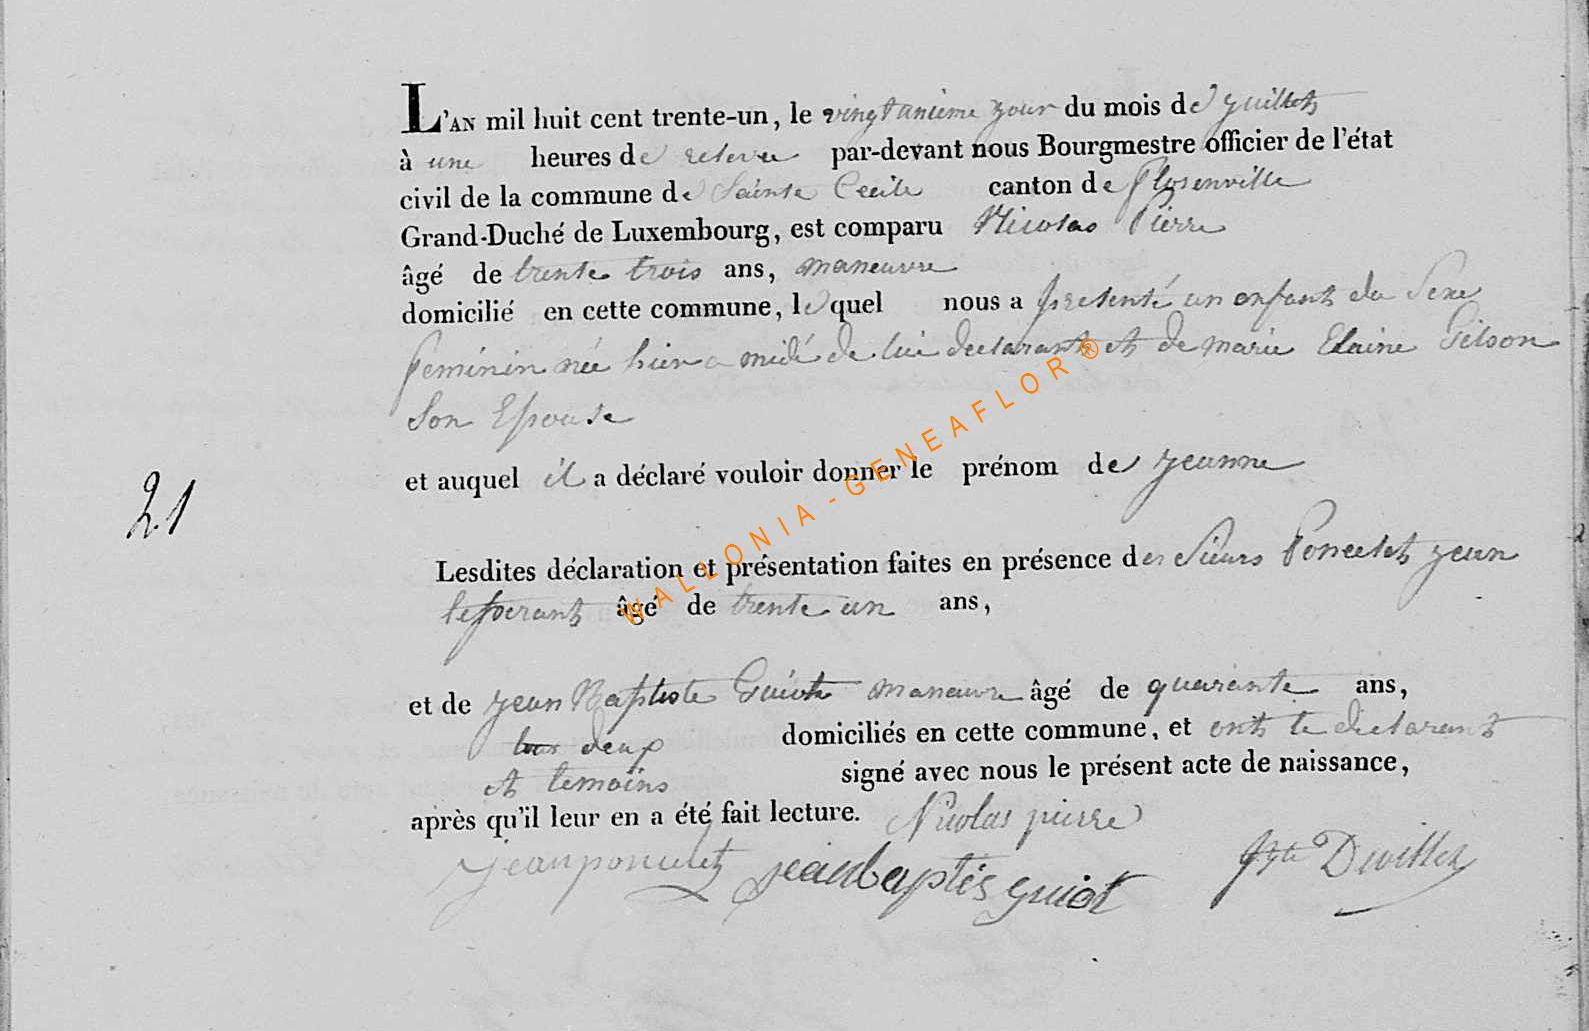 L'AN mil huit cent trente-un, le vingt unieme jour du mois de juillet
à une heures de relevee par-devant nous Bourgmestre officier de l'état
civil de la commune de Sainte Cecile canton de florenville
Grand-Duché de Luxembourg, est comparu Nicolas Pierre
âgé de trente trois ans, maneuvre
domicilié en cette commune, lequel nous a presenté un enfant du Sexe
feminin née hier a midi de lui declarant et de marie Elaine Gilson
Son Epouse
et auquel il a déclaré vouloir donner le prénom de jeanne
21
Lesdites déclaration et présentation faites en présence des Sieurs Poncelet jean
âgé de trente un ans,
et de jean Baptiste Guiot maneuvre âgé de quarante ans,
deux domiciliés en cette commune, et ont le declarant
et temoins signé avec nous le présent acte de naissance,
après qu'il leur en a été fait lecture. Nicolas pierre
jean poncelet jean baptis guiot
WALLONIA-GENEAFLOR®